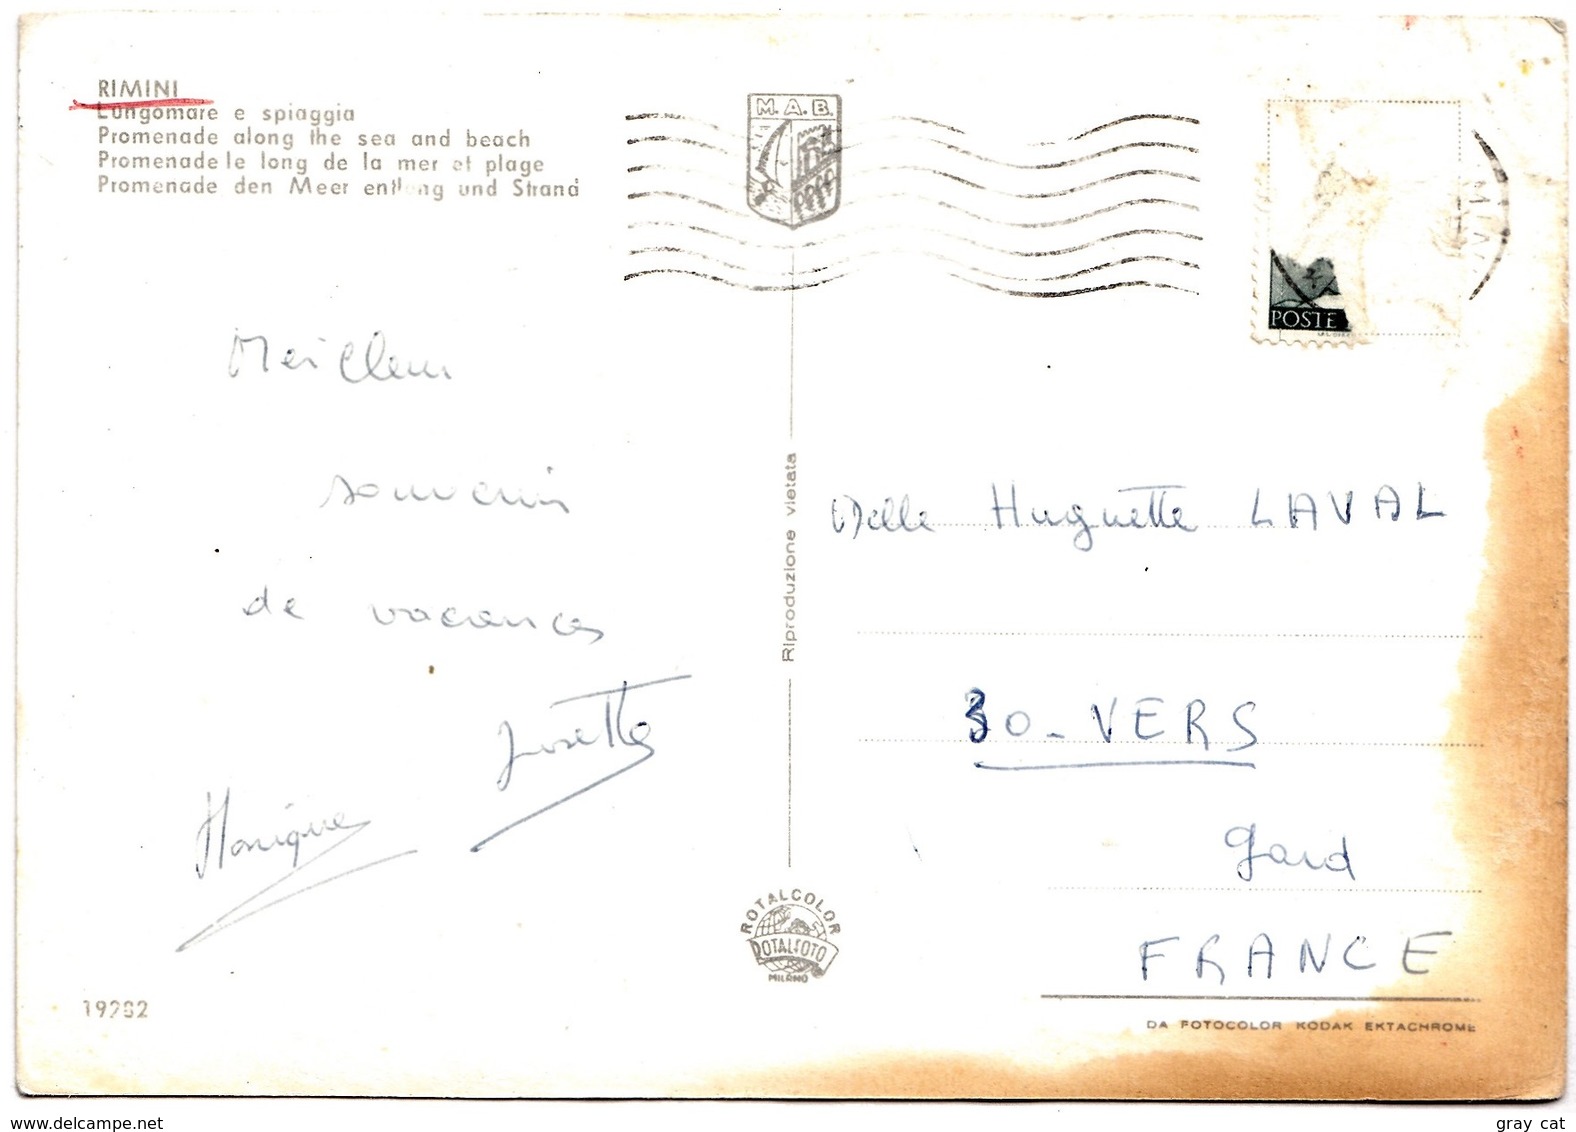 RIMINI
Lungomare e spiaggia
Promenade along the sea and beach
Promenade le long de la mer et plage
Promenade den Meer entlang und Strand
M.A.B.
POSTE
Meilleur
souvenir
de vacances
Josette
Monique
Riproduzione vietata
Melle Huguette LAVAL
30-VERS
Gard
FRANCE
ROTALCOLOR
ROTALFOTO
MILANO
19282
DA FOTOCOLOR KODAK EKTACHROME
www.delcampe.net
gray cat